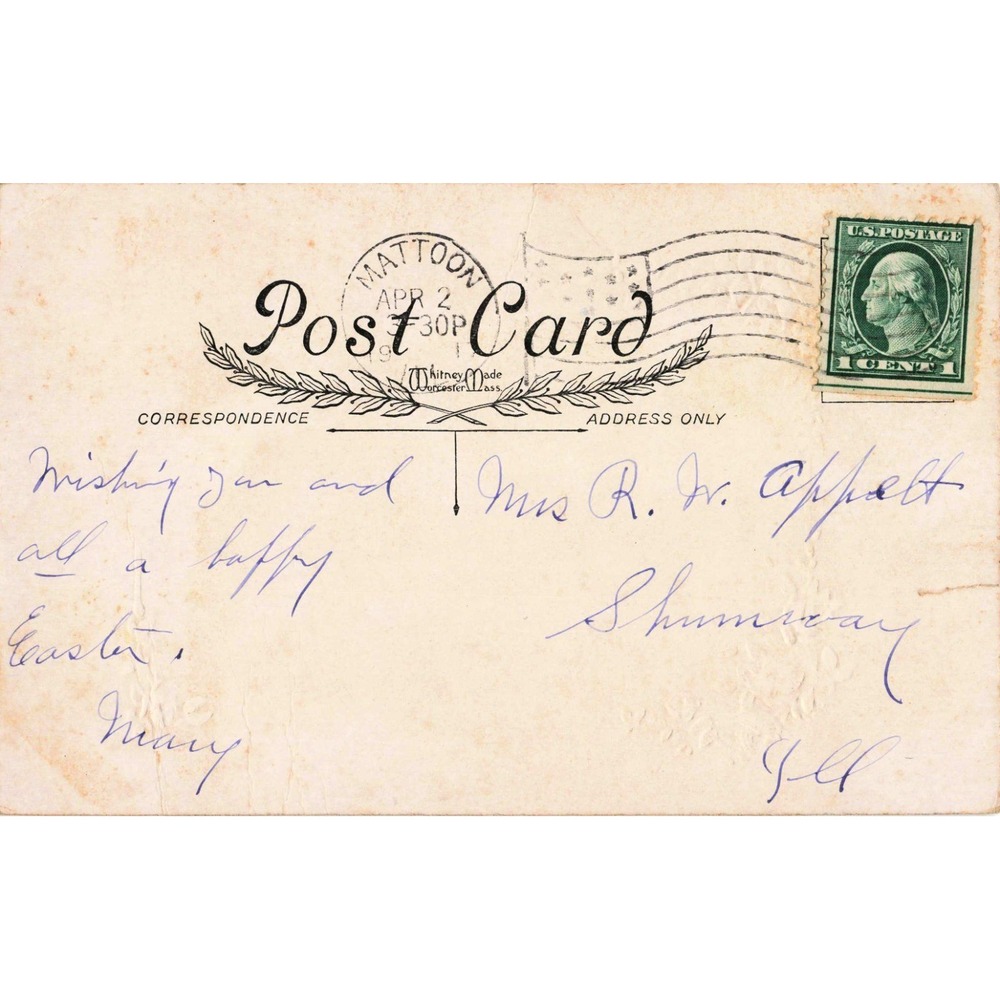 U.S. POSTAGE
1 CENT 1
MATTOON
APR 2
3-30P
Post Card
Whitney Made
Worcester Mass.
CORRESPONDENCE
ADDRESS ONLY
Wishing you and
all a happy
Easter.
Mary
Mrs R. W. Appelt
Shumway
Ill